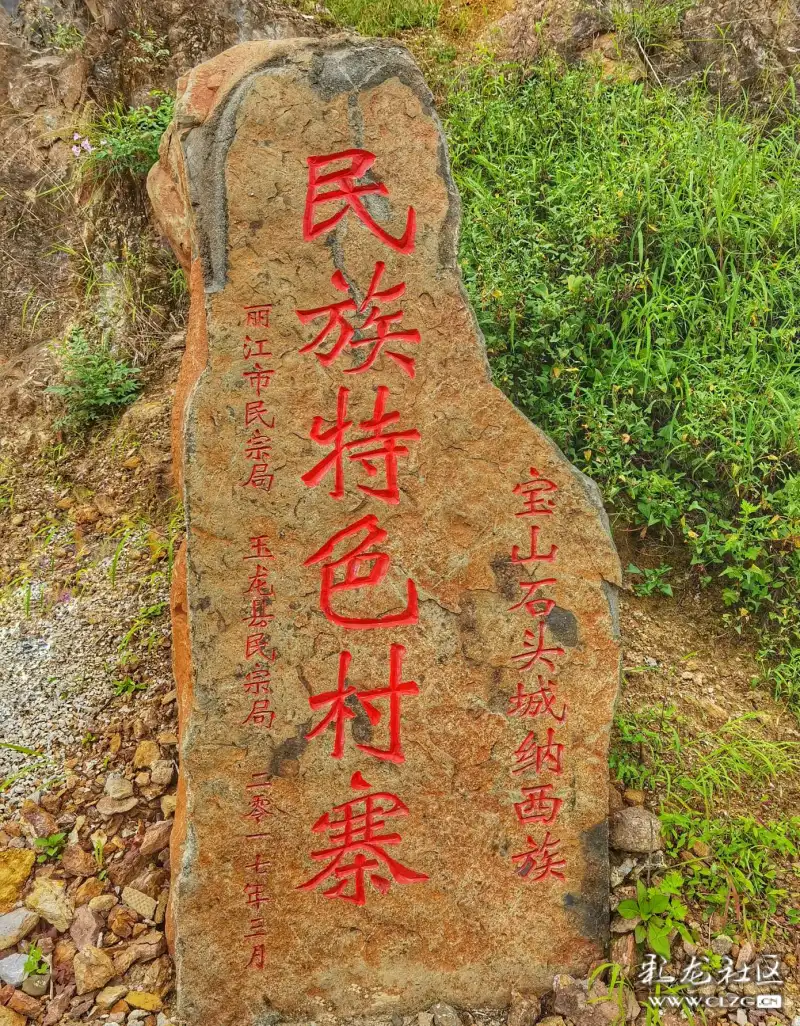 宝山石头城纳西族
民族特色村寨
丽江市民宗局 玉龙县民宗局 二零一七年三月
彩龙社区
WWW.CLZG.CN